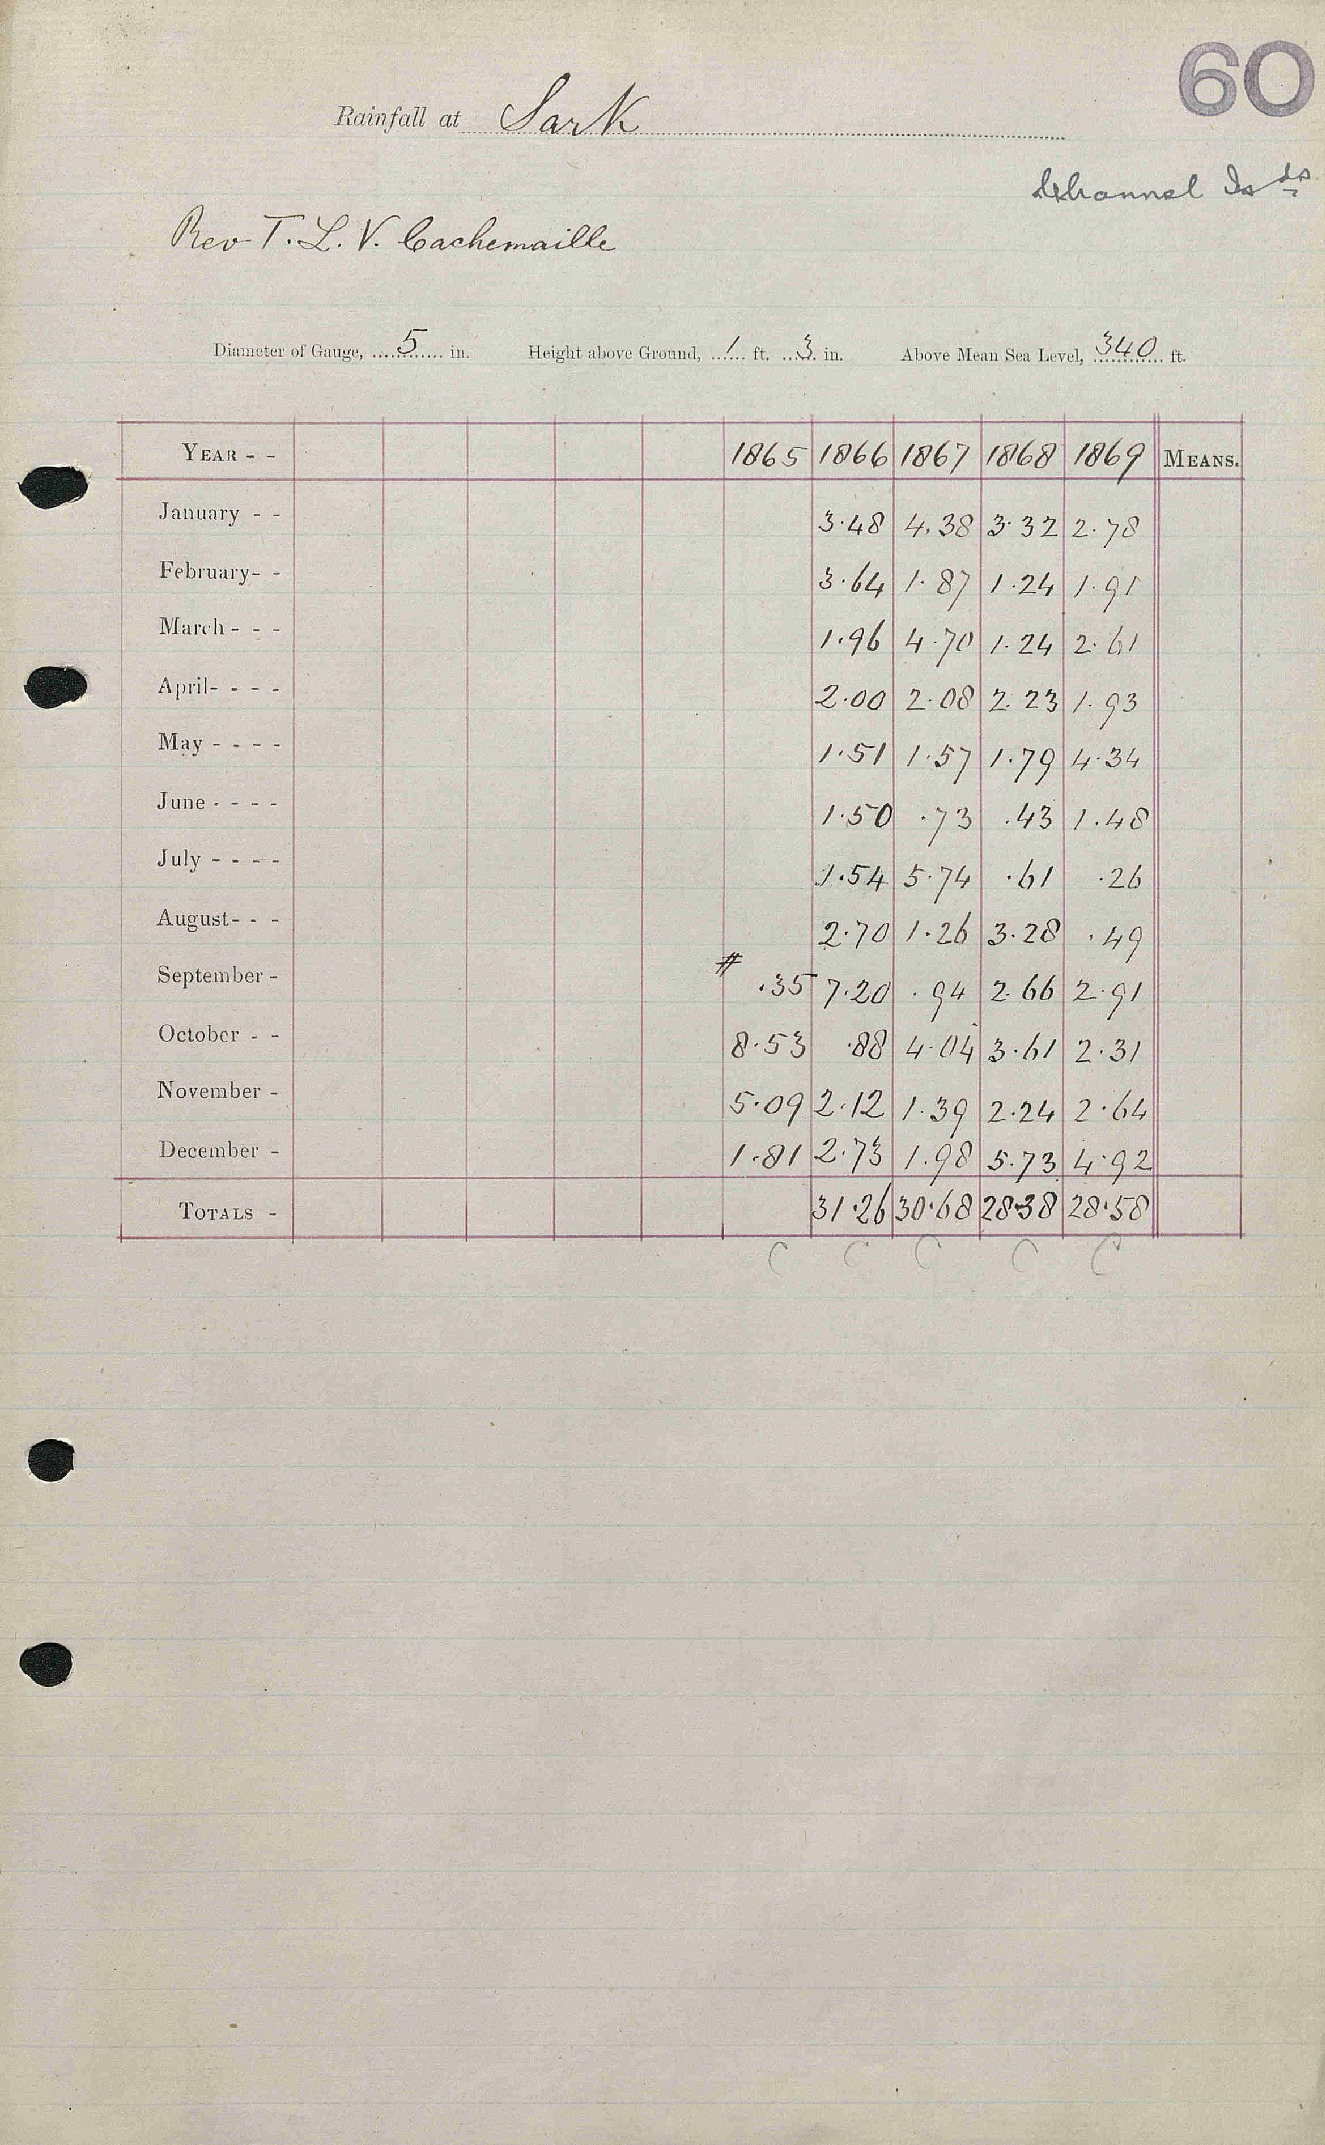 60
Rainfall at Sark
Channel Isds
Rev T. L. V. Cachemaille
Diameter of Gauge, 5 in. Height above Ground, 1 ft. 3 in. Above Mean Sea Level, 340 ft.
YEAR - - 1865 1866 1867 1868 1869 MEANS.
January - - 3.48 4.38 3.32 2.78
February - - 3.64 1.87 1.24 1.91
March - - - 1.96 4.70 1.24 2.61
April - - - - 2.00 2.08 2.23 1.93
May - - - - 1.51 1.57 1.79 4.34
June - - - - 1.50 .73 .43 1.48
July - - - - 1.54 5.74 .61 .26
August - - - 2.70 1.26 3.28 .49
September - # .35 7.20 .94 2.66 2.91
October - - 8.53 .88 4.04 3.61 2.31
November - 5.09 2.12 1.39 2.24 2.64
December - 1.81 2.73 1.98 5.73 4.92
TOTALS - 31.26 30.68 28.38 28.58
C C C C C